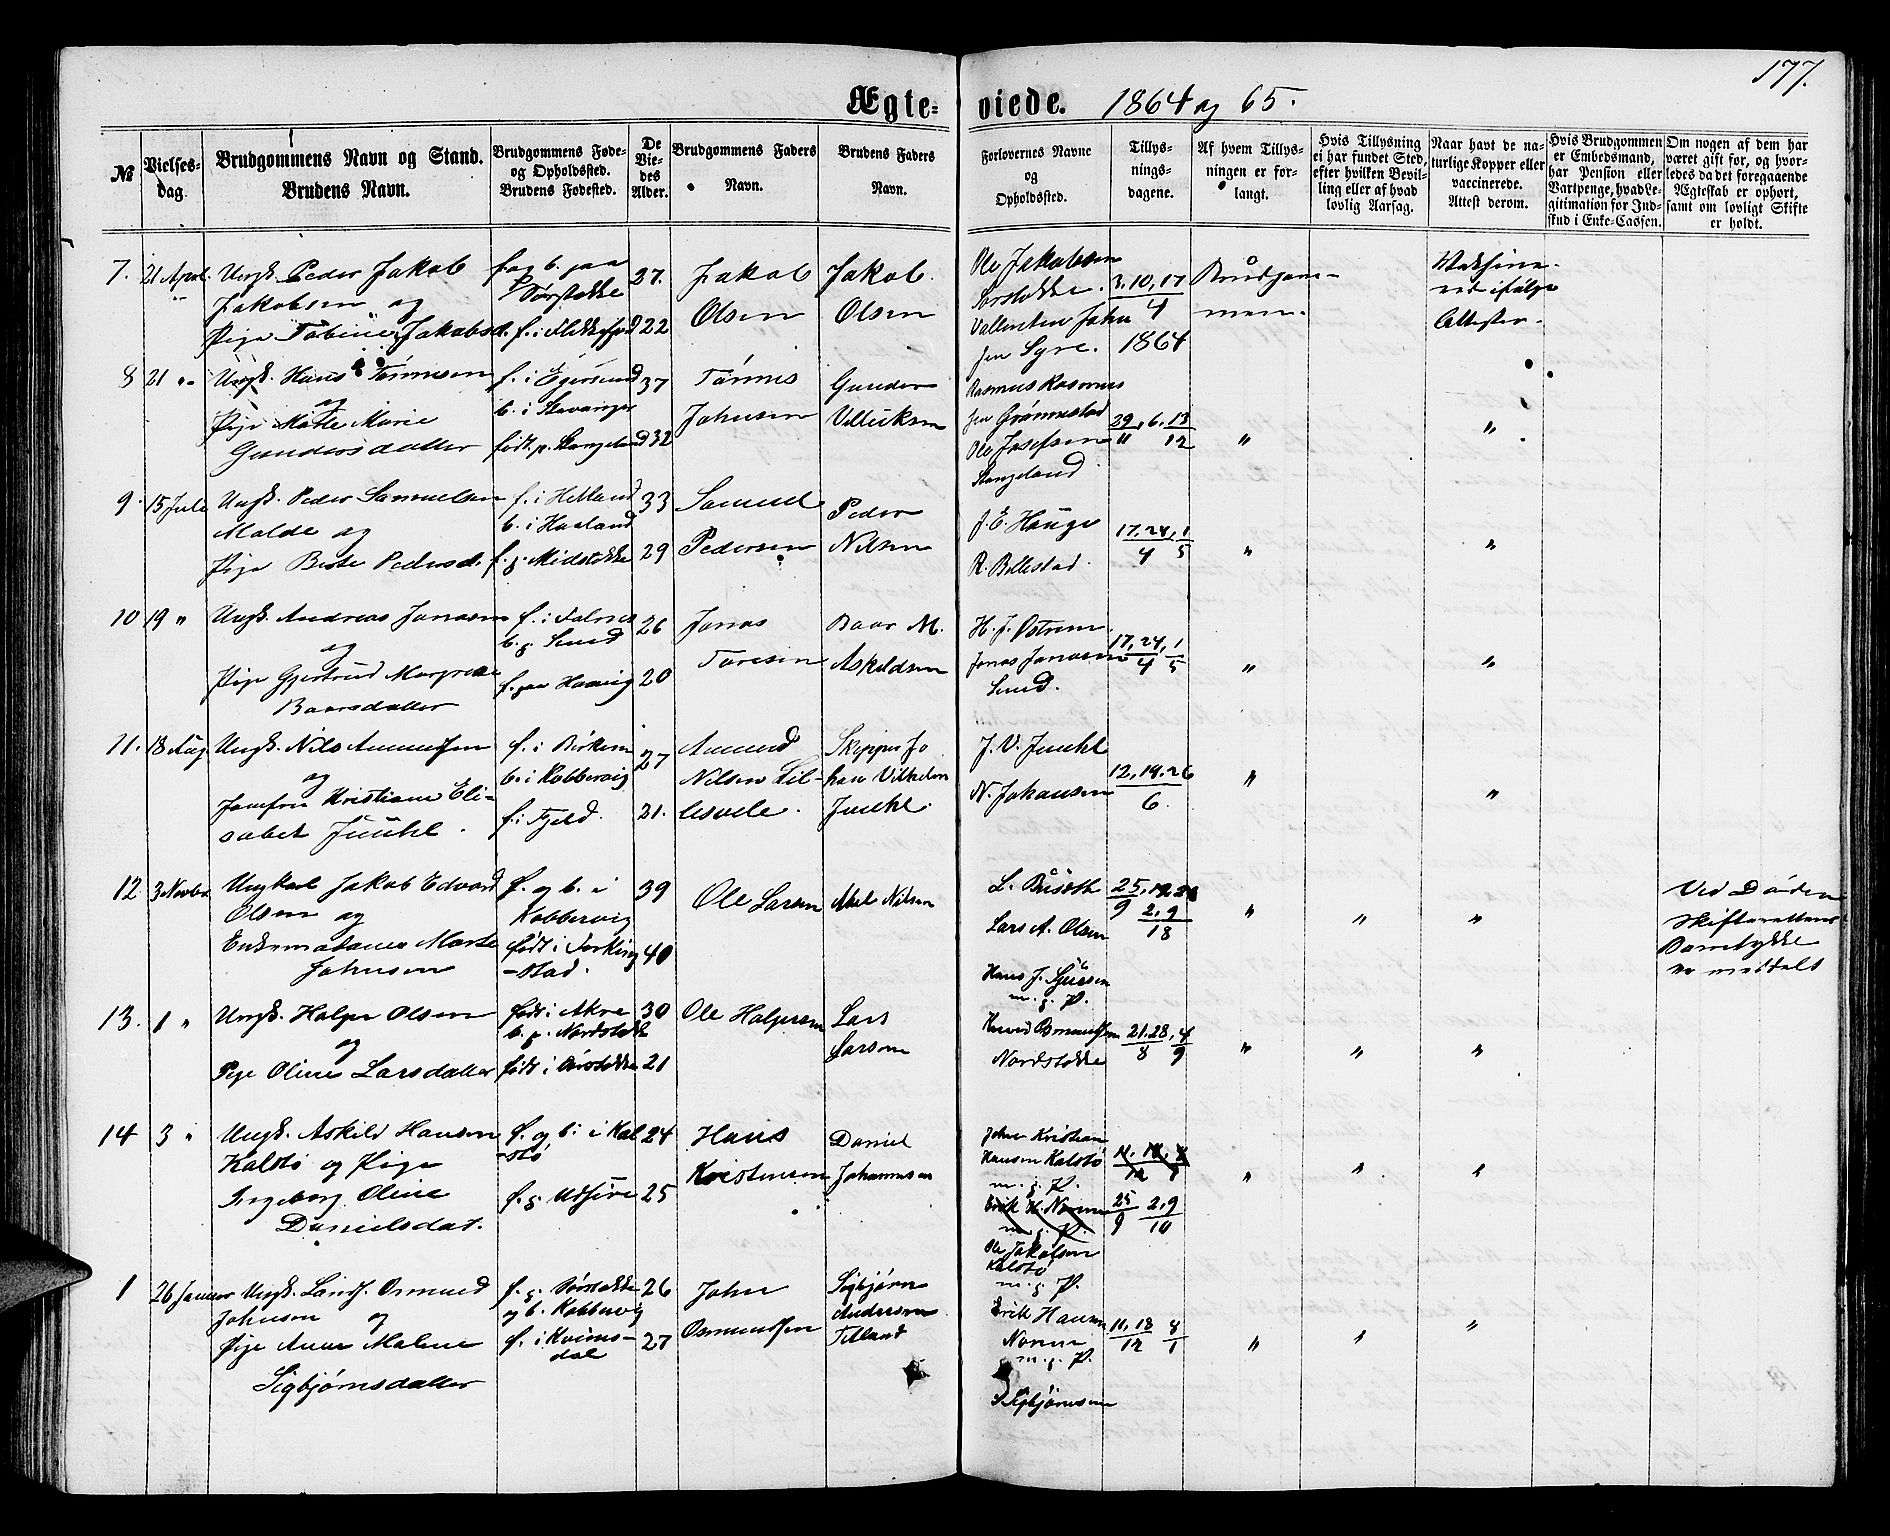 177.
Ægte- viede. 1864 og 65.
№
Vielses-
dag.
Brudgommens Navn og Stand.
Brudens Navn.
Brudgommens Føde-
og Opholdssted.
Brudens Fødested.
De
Vie-
des
Alder.
Brudgommens Faders
Navn.
Brudens Faders
Navn.
Forlovernes Navne
og
Opholdssted.
Tillys-
nings-
dagene.
Af hvem Tillys-
ningen er for-
langt.
Hvis Tillysning
ei har fundet Sted,
efter hvilken Bevil-
ling eller af hvad
lovlig Aarsag.
Naar havt de na-
turlige Kopper eller
vaccinerede.
Attest derom.
Hvis Brudgommen
er Embedsmand,
har Pension eller
Vartpenge, hvad Le-
gitimation for Ind-
skud i Enke-Cassen.
Om nogen af dem har
været gift for, og hvor-
ledes da det foregaaende
Ægteskab er ophørt,
samt om lovligt Skifte
er holdt.
7. 21 April
Ungk. Peder Jakob
Jakobsen og
Pige Tobine Jakobsd.
f. og b. paa
Sørstokke
f. i Flekkefjord
27.
22
Jakob
Olsen
Jakob
Olsen
Ole Jakobsen
Sørstokke.
Vallentin John
sen Syre.
3, 10, 17
4
1864
Brudgom-
men.
Vaksine-
rede ifølge
Attester.
8 21 "
Ungk. Hans Tønnesen
og
Pige Marte Marie
Gundersdatter
f. i Egersund
b. i Stavanger
født p. Stangeland
37
32
Tønnes
Johnsen
Gunder
Villiksen
Rasmus Rasmus
sen Grønnestad
Ole Josefsen
Stangeland
29, 6, 13
11 12
"
"
9. 15 Jule
Ungk. Peder Samuelsen
Malde og
Pige Berte Pedersd.
f. i Hetland
b. i Haaland
f. p. Midstokke
33
29
Samuel
Pedersen
Peder
Nilsen
J. E. Hauge
R. Bellestad.
17, 24, 1
4 5
"
"
10 19 "
Ungk. Andreas Jonasen
og
Pige Gjertrud Margrete
Baarsdatter
f. i Falnes
b. p. Sund
f. paa Haavig
26
20
Jonas
Toresen
Baar M.
Askeldsen
H. J. Østrem.
Jonas Jonasen
Sund.
17, 24, 1
4 5
"
"
11. 18 Aug.
Ungk. Nils Amundsen
og
Jomfru Kristiane Eli-
sabet Juuhl.
f. i Birkem
b. i Kobbervig
f. i Fjeld.
27
21.
Amund
Nilsen Lil-
lesvele.
Skipper Jo
han Vilhelm
Juuhl.
J. V. Juuhl
N. Johansen
12, 19, 26
6.
"
"
12. 3 Novbr
Ungkarl Jakob Edvard
Olsen og
Enkemadame Marte
Johnsen
f. og b. i
Kobbervig
født i Ferking
-stad.
39
40
Ole Larsen
Abel Nilsen
L. Buseth
Lars A. Olsen
25,
9 2, 9
"
"
"
Ved Døden
Skifterettens
Samtykke
er meddelt
13. 1 "
Ungk. Holger Olsen
og
Pige Oline Larsdatter
født i Akre
b. p. Nordstokke
født i Sørstokke
30
21
Ole Holgersen
Lars
Larsen
Hans J. Sjursen
m. p. P.
Osmundsen
Nordstokke
21, 28, 4
8 9
"
"
"
14 3 "
Ungk. Askild Hansen
Kalstø og Pige
Ingeborg Oline
Danielsdat.
f. og b. i Kal
-stø
f. p. Utsire
24
25
Hans
Kristensen
Daniel
Johannesen
John Kristian
Hansen Kalstø
m. p. P.
Erik H. Norem
m. p. P.
Ole Jakobsen
Kalstø
m. p. P.
11, 18, 8
12 1
25 2, 9
9 10
"
"
"
1 26 Januar
Ungk. Landh. Osmund
Johnsen og
Pige Anne Malene
Sigbjørnsdatter
f. p. Sørstokke
og b. Kobbervig
f. i Kvims-
dal
26
27
John
Osmundsen
Sigbjørn
Andersen
Tilland
Erik Hansen
Norem
m. p. P.
Sigbjørnsen
11, 18 8
12 1
"
"
"